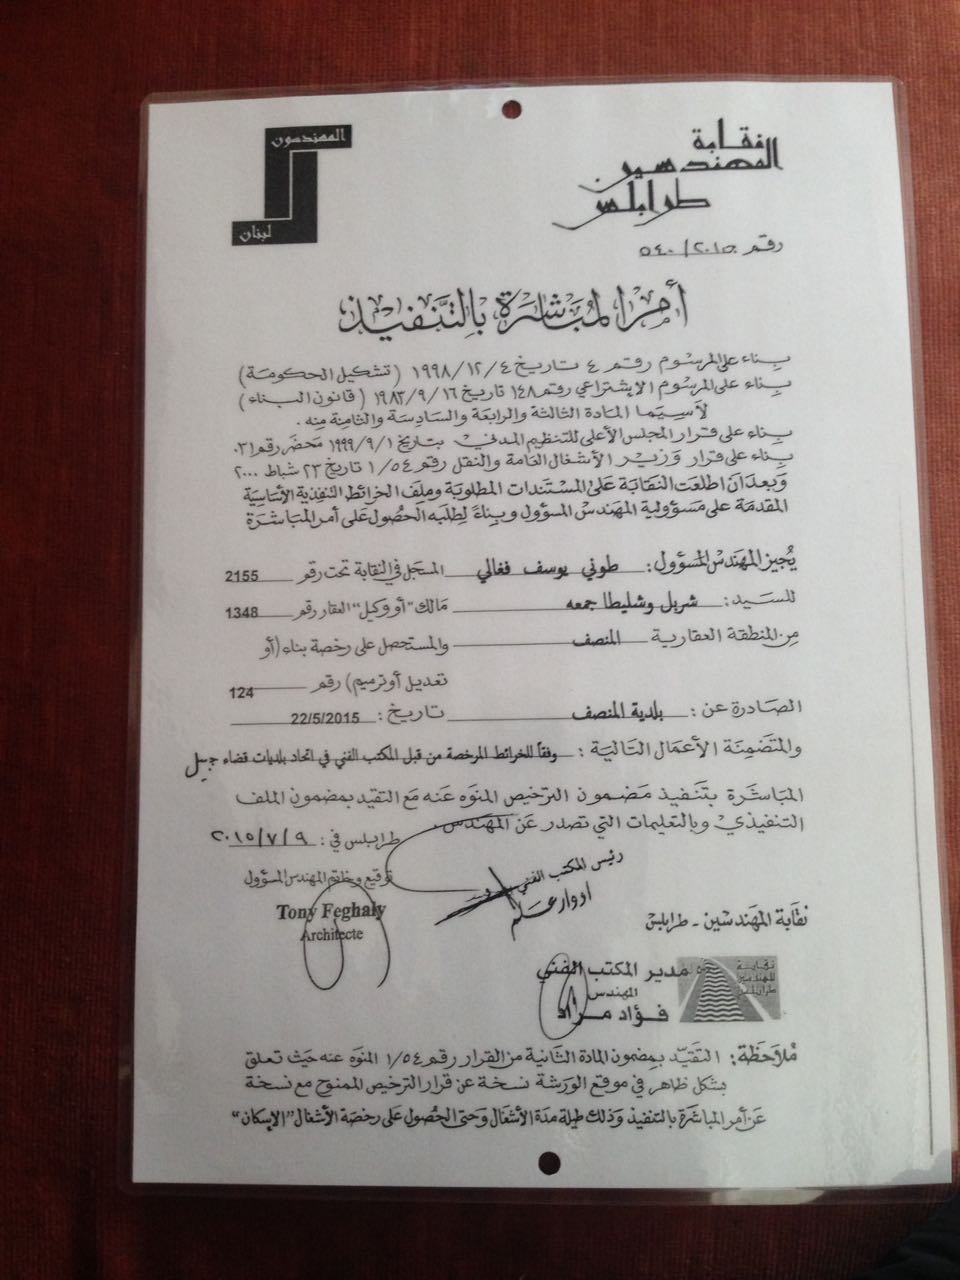 المهندسون
لبنان
نقابة
المهندسين
طرابلس
رقم ٥٤٠/٢٠١٥
أمر المباشرة بالتنفيذ
بناء على المرسوم رقم ٤ تاريخ ١٩٩٨/١٢/٤ (تشكيل الحكومة)
بناء على المرسوم الإشتراعي رقم ١٤٨ تاريخ ١٩٨٣/٩/١٦ (قانون البناء)
لاسيما المادة الثالثة والرابعة والسادسة والثامنة منه.
بناء على قرار المجلس الأعلى للتنظيم المدني بتاريخ ١٩٩٩/٩/١ محضر رقم ٣١.
بناء على قرار وزير الأشغال العامة والنقل رقم ١/٥٤ تاريخ ٢٣ شباط ٢٠٠٠
وبعد ان اطلعت النقابة على المستندات المطلوبة وملف الخرائط التنفيذية الأساسية
المقدمة على مسؤولية المهندس المسؤول وبناءً لطلبه الحصول على أمر المباشرة
يُجيز المهندس المسؤول: طوني يوسف فغالي المسجل في النقابة تحت رقم 2155
للسيد: شربل وشليطا جمعه مالك "أو وكيل" العقار رقم 1348
من المنطقة العقارية المنصف والمستحصل على رخصة بناء (أو
تعديل أو ترميم) رقم 124
الصادرة عن: بلدية المنصف تاريخ: 22/5/2015
والمتضمنة الأعمال التالية: وفقاً للخرائط المرخصة من قبل المكتب الفني في اتحاد بلديات قضاء جبيل
المباشرة بتنفيذ مضمون الترخيص المنوه عنه مع التقيد بمضمون الملف
التنفيذي وبالتعليمات التي تصدر عن المهندس.
طرابلس في: ٢٠١٥/٧/٩
توقيع وخاتم المهندس المسؤول
Tony Feghaly
Architecte
رئيس المكتب الفني
نقابة المهندسين - طرابلس
مدير المكتب الفني
المهندس
فؤاد مراد
نقابة
المهندسين
طرابلس
مُلاحَظة: التقيّد بمضمون المادة الثانية من القرار رقم ١/٥٤ المنوه عنه حيث تعلق
بشكل ظاهر في موقع الورشة نسخة عن قرار الترخيص الممنوح مع نسخة
عن أمر المباشرة بالتنفيذ وذلك طيلة مدة الأشغال وحتى الحصول على رخصة الأشغال "الإسكان"